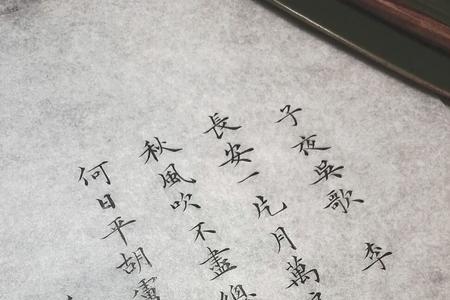 子夜吳歌 李
長安一片月萬
秋風吹不盡總
何日平胡虜